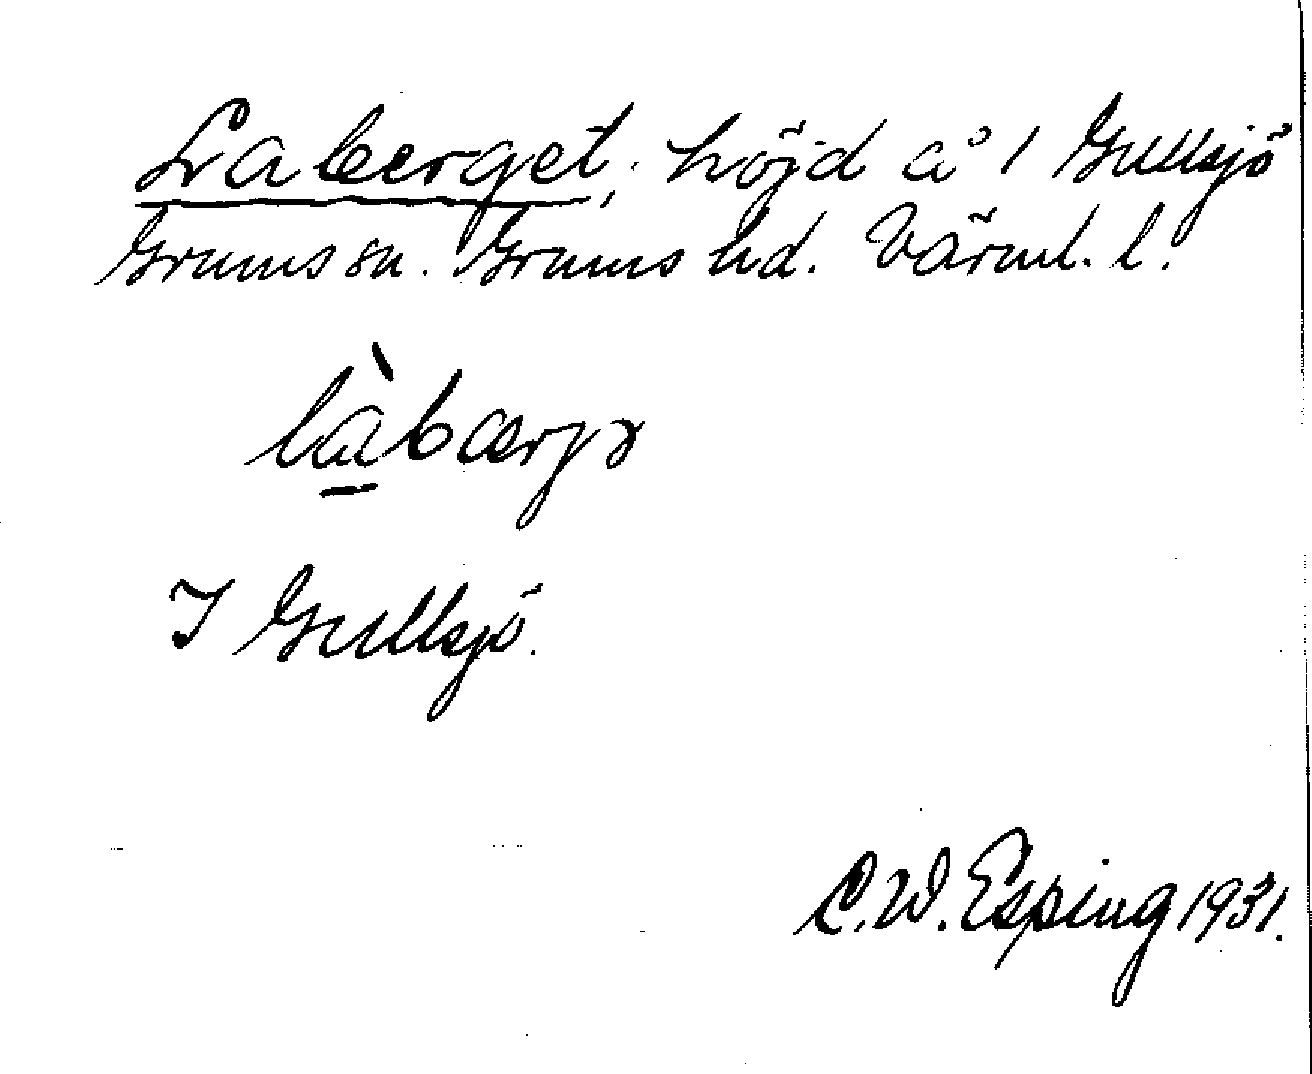 Laberget; höjd å 1 Gullsjö
Grums sn. Grums hd. Värml. l.
làbærjɤ
I Gullsjö.
C.W. Esping 1931.